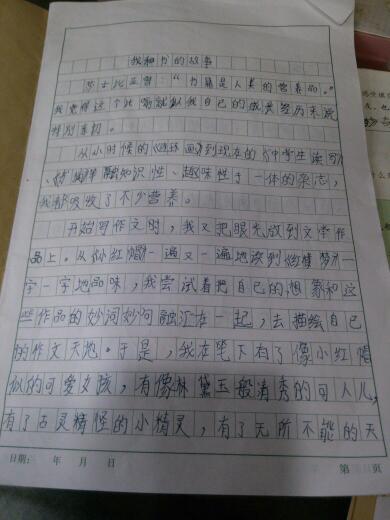 我和书的故事
莎士比亚曾:“书籍是人类的营养品。”
我觉得这个比喻就似我自己的成长经历来说
特别亲切。
从小时候的《连环画》到现在的《中学生读
融知识性、趣味性于一体的杂志,
我都吸收了不少营养。
开始写作文时,我又把眼光放到文学作
品上。从《小红帽》一遍又一遍地读到《红楼梦》一
字一字地品味,我尝试着把自己的想象和这
些作品的妙词妙句融汇在一起,去描绘自己
的作文天地。于是,我在笔下有了像小红帽
似的可爱女孩,有像林黛玉般清秀的可人儿,
有了古灵精怪的小精灵,有了无所不能的天
日期: 年 月 日
第 页